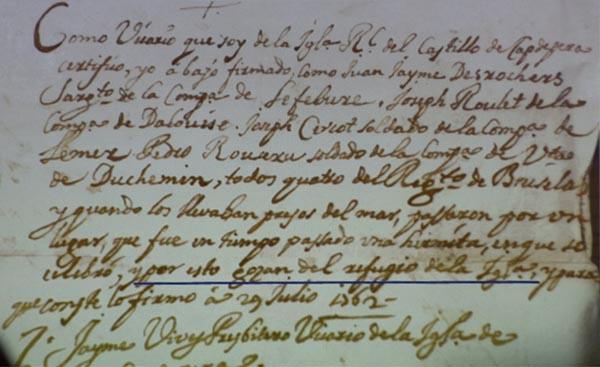 Como Vicario que soy de la Igla. Rl. del Castillo de Capdepera
certifico, yo abajo firmado, como Juan Jayme Desrochers
Sargto. de la Compa. de Lefebure, Joseph Roulet de la
Compa. de Dalouise. Joseph soldado de la Compa. de
Pedro soldado de la Compa. de
de Duchemin, todos quatro del Regto. de Bruselas
y quando los llevaban presos del mar, passaron por un
lugar, que fue un tiempo passado una hirmita, en que se
celibró, y por esto gozan del refugio de la Igla. y para
que conste lo firmo á 29 Julio 1762
Jayme Presbitero Vicario de la Igla. de